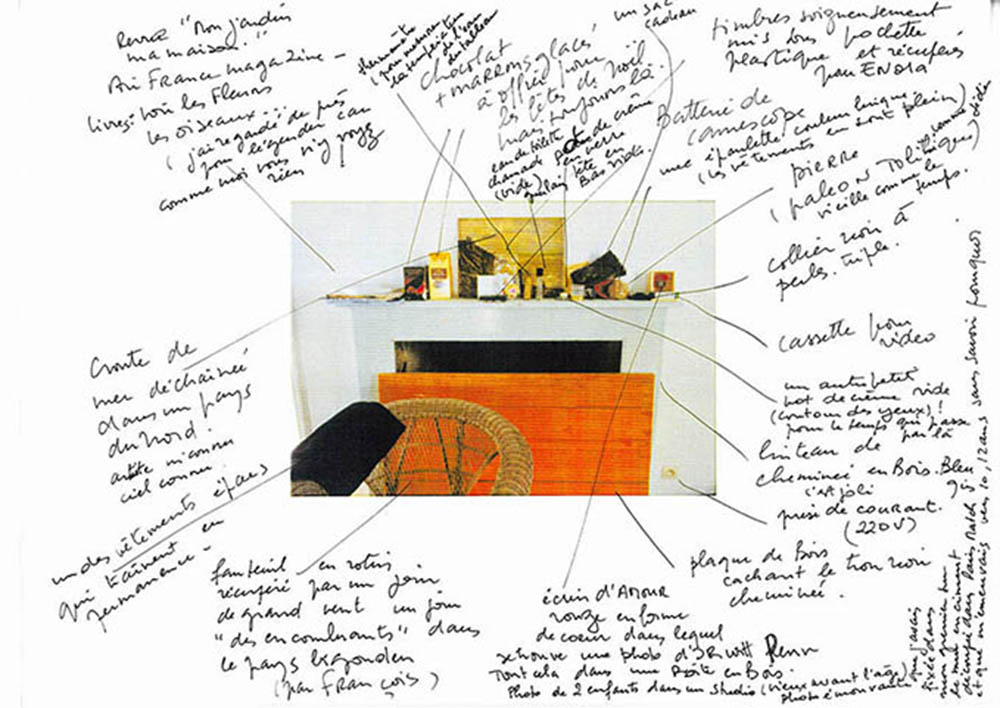 Revue "Mon jardin
ma maison."
Air France magazine –
livres: voir les Fleurs
les oiseaux...
(j'ai regardé de près
pour légender car
comme moi vous n'y voyez
rien
thermomètre
(pour mesurer
la température
de l'eau
du tableau
chocolat
+ marrons glacés
à offrir pour
les fêtes de Noël
mais toujours là.
eau de toilette
chamade
(vide)
pot de crème
en verre
Bas vide.
un sac
cadeau
timbres soigneusement
mis sous pochette
plastique et récupérés
par ENOLA
Batterie de
camescope
une épaulette couleur lingue
(les vêtements en sont plein)
PIERRE
(paléo N Tolithique)
vieille comme le
temps.
collier noir à
perles. triple.
cassette pour
video
un autre petit
pot de crème vide
(contour des yeux)!
pour le temps qui passe
par là
linteau de
cheminée en Bois. Bleu gris
c'est joli
prise de courant.
(220V)
plaque de Bois
cachant le trou noir
cheminée.
écrin d'AMOUR
rouge en forme
de coeur dans lequel
retrouve une photo d'
Tout cela dans une Boîte en Bois.
Photo de 2 enfants dans un studio (vieux avant l'âge)
fauteuil en rotin
récupéré par un jour
de grand vent un jour
"des encombrants" dans
le pays bigouden
(par François)
un des vêtements épars
qui traînent en
permanence –
Croute de
mer déchainée
dans un pays
du nord.
artiste inconnu
ciel connu
que j'avais
fixée dans
mon premier
le mur en ciment
découpée dans Paris Match
et que on vers 10, 12 ans sans savoir pourquoi